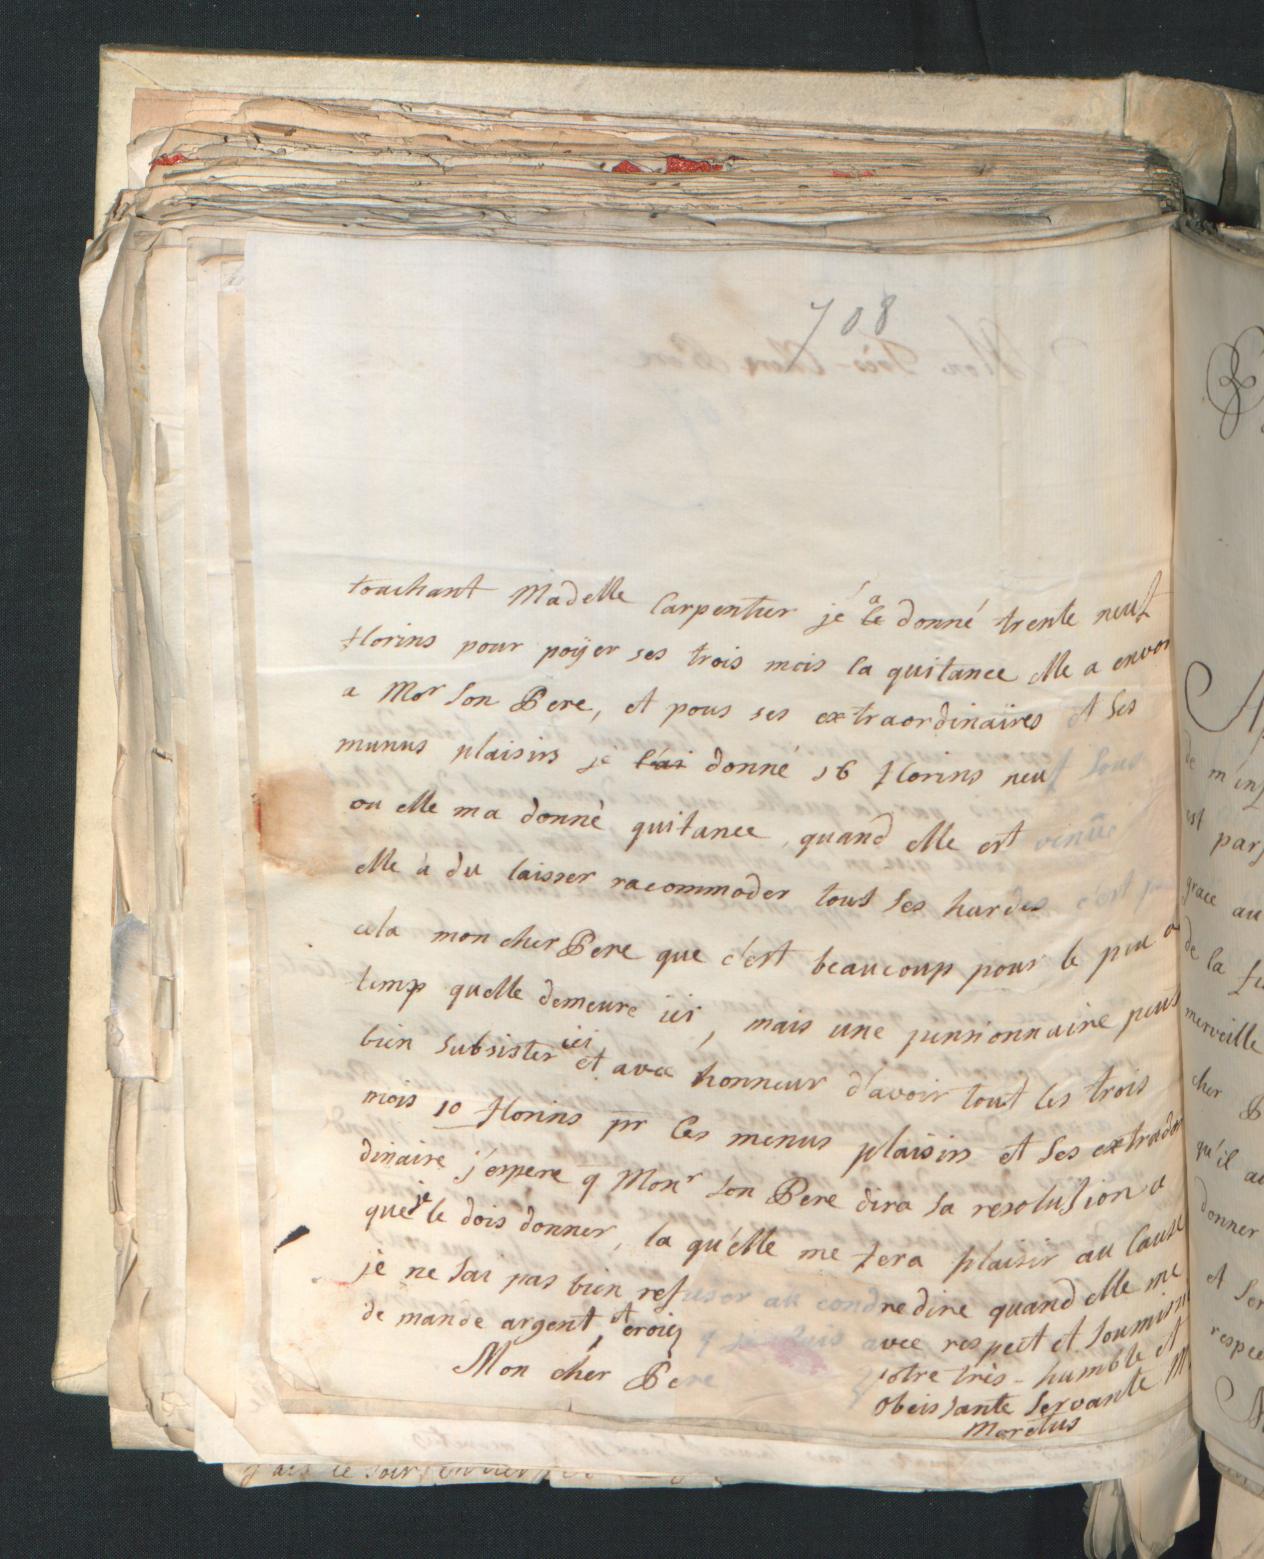 708
touchant Madelle Carpentier jé a le donné trente neuf
florins pour poÿer ses trois mois la quitance elle a envoi
a Mor son Pere, et pour ses extraordinaires et ses
munus plaisirs je l'ai donné 16 florins neuf sous
ou elle ma donné quitance, quand elle est vinüe
elle a du laisser racommoder tout ses hardes c'est
cela mon cher Pere que c'est beaucoup pour le peu
temp quelle demeure ici, mais une pensionnaire peut
bien subsister ici et avec honneur d'avoir tout les trois
mois 10 florins pr les menus plaisirs et ses extraor
dinaire j'espere q Monr son Pere dira sa resolution a
que je le dois donner, la qu'elle me fera plaisir au cause
je ne sai pas bien refuser au condredire quand elle me
de mande argent, et croiez q je suis avec respect et soumission
Mon cher Pere
votre très-humble et
obeissante servante M
Moretus
de m'inf
est parf
grace au
de la
merveille
cher P
qu'il
donner
et
respec